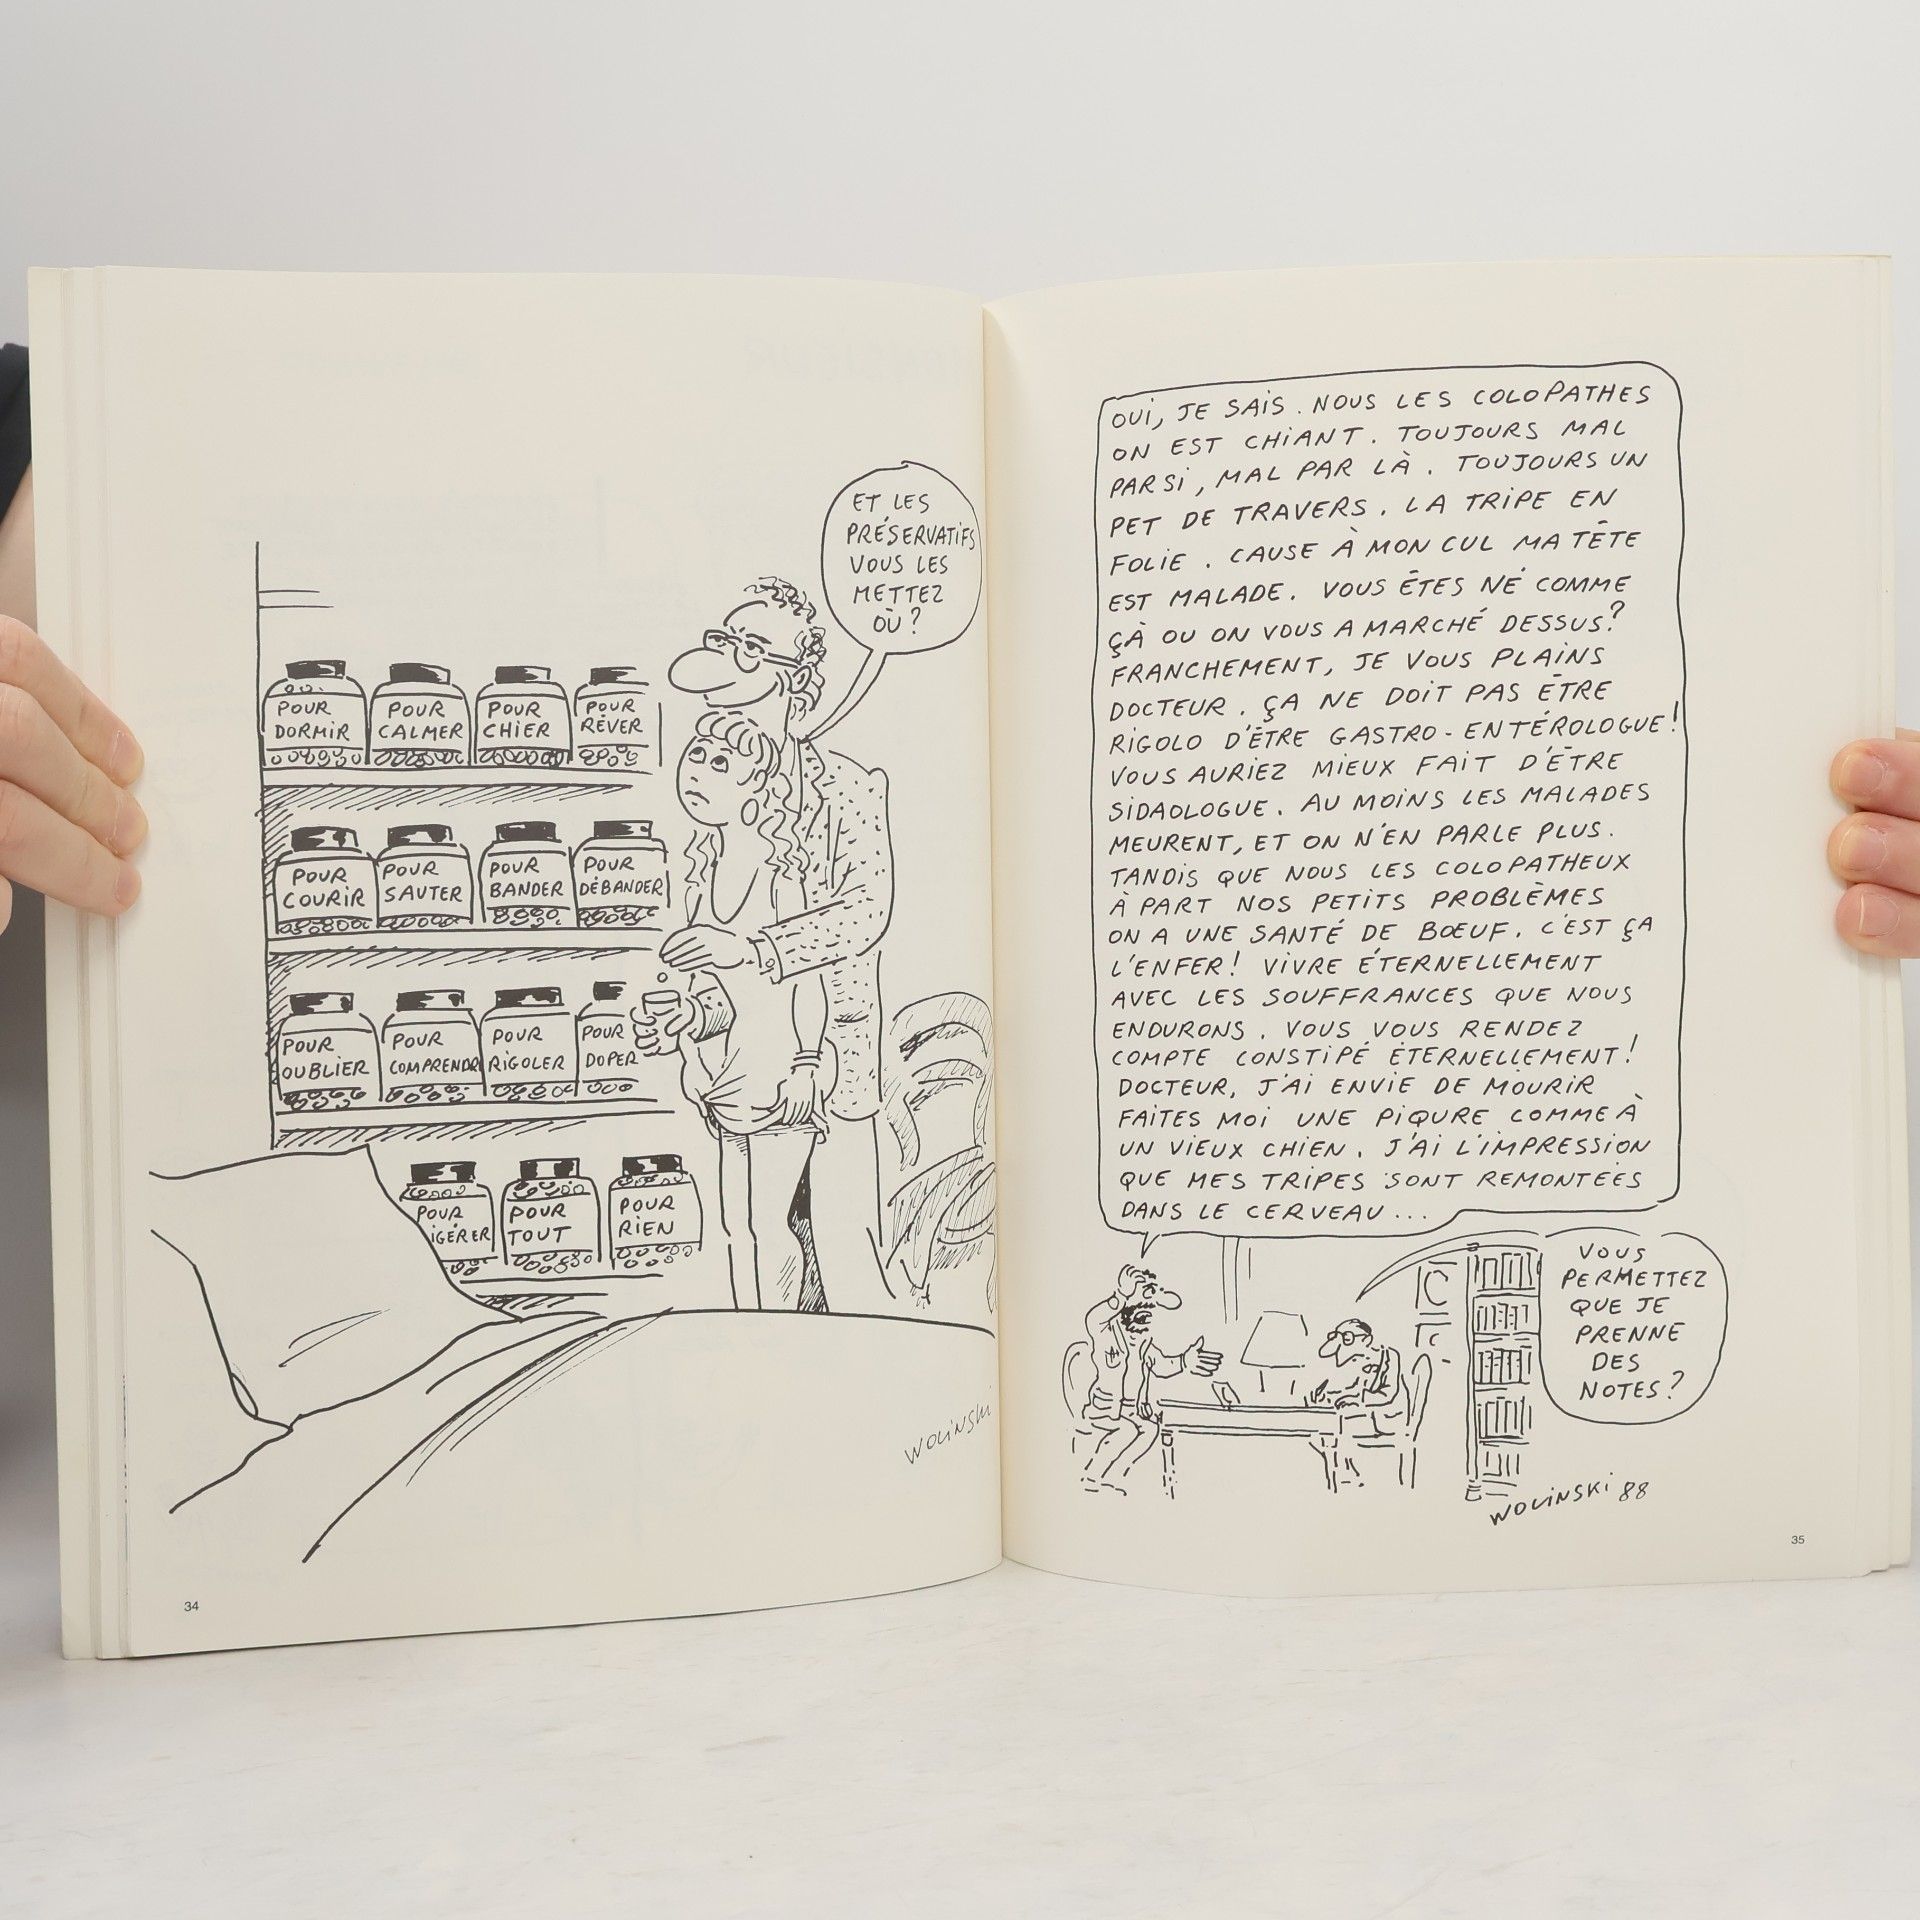 ET LES
PRÉSERVATIFS
VOUS LES
METTEZ
OÙ?
POUR
DORMIR
POUR
CALMER
POUR
CHIER
POUR
RÊVER
POUR
COURIR
POUR
SAUTER
POUR
BANDER
POUR
DÉBANDER
POUR
OUBLIER
POUR
COMPRENDR
POUR
RIGOLER
POUR
DOPER
POUR
IGÉRER
POUR
TOUT
POUR
RIEN
WOLINSKI
34
OUI, JE SAIS. NOUS LES COLOPATHES
ON EST CHIANT. TOUJOURS MAL
PAR SI, MAL PAR LÀ. TOUJOURS UN
PET DE TRAVERS. LA TRIPE EN
FOLIE. CAUSE À MON CUL MA TÊTE
EST MALADE. VOUS ÊTES NÉ COMME
ÇÀ OU ON VOUS A MARCHÉ DESSUS?
FRANCHEMENT, JE VOUS PLAINS
DOCTEUR. ÇA NE DOIT PAS ÊTRE
RIGOLO D'ÊTRE GASTRO-ENTÉROLOGUE!
VOUS AURIEZ MIEUX FAIT D'ÊTRE
SIDAOLOGUE. AU MOINS LES MALADES
MEURENT, ET ON N'EN PARLE PLUS.
TANDIS QUE NOUS LES COLOPATHEUX
À PART NOS PETITS PROBLÈMES
ON A UNE SANTÉ DE BŒUF. C'EST ÇA
L'ENFER! VIVRE ÉTERNELLEMENT
AVEC LES SOUFFRANCES QUE NOUS
ENDURONS. VOUS VOUS RENDEZ
COMPTE CONSTIPÉ ÉTERNELLEMENT!
DOCTEUR, J'AI ENVIE DE MOURIR
FAITES MOI UNE PIQURE COMME À
UN VIEUX CHIEN. J'AI L'IMPRESSION
QUE MES TRIPES SONT REMONTÉES
DANS LE CERVEAU...
VOUS
PERMETTEZ
QUE JE
PRENNE
DES
NOTES?
WOLINSKI 88
35